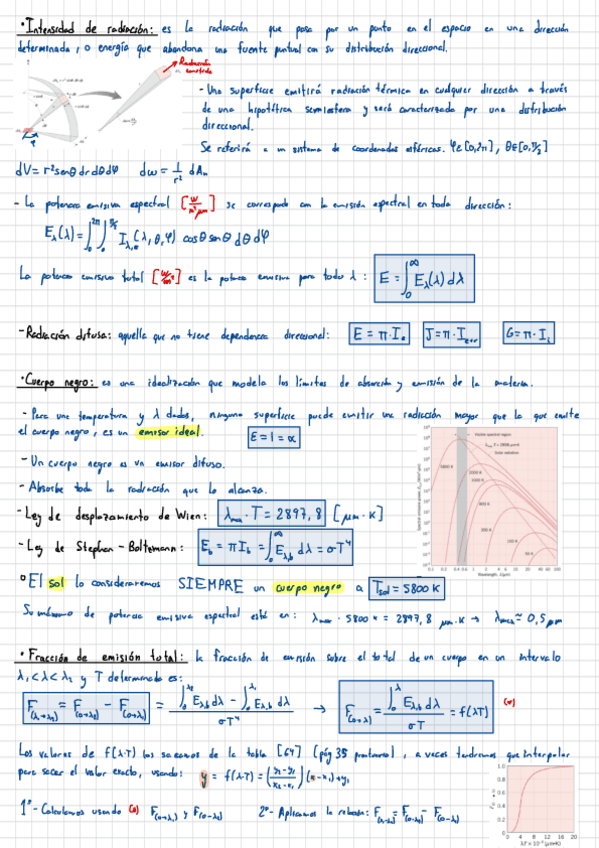 · Intensidad de radiación: es la radiación que pasa por un punto en el espacio en una dirección
determinada, o energía que abandona una fuente puntual con su distribución direccional.
Radiación emitida
- Una superficie emitirá radiación térmica en cualquier dirección a través
de una hipotética semiesfera y será caracterizada por una distribución
direccional.
Se referirá a un sistema de coordenadas esféricas. φ∈[0,2π], θ∈[0,π/2]
dV = r² senθ dr dθ dφ dω = 1/r² dAn
- La potencia emisiva espectral [W/m²μm] se corresponde con la emisión espectral en toda dirección:
Eλ(λ) = ∫₀^2π ∫₀^π/2 Iλ,e(λ,θ,φ) cosθ senθ dθ dφ
La potencia emisiva total [W/m²] es la potencia emisiva para todo λ: E = ∫₀^∞ Eλ(λ) dλ
- Radiación difusa: aquella que no tiene dependencia direccional: E = π·Ie J = π·Ie+r G = π·Ii
· Cuerpo negro: es una idealización que modela los límites de absorción y emisión de la materia.
- Para una temperatura y λ dados, ninguna superficie puede emitir una radiación mayor que la que emite
el cuerpo negro, es un emisor ideal. E = 1 = α
- Un cuerpo negro es un emisor difuso.
- Absorbe toda la radiación que lo alcanza.
- Ley de desplazamiento de Wien: λmax · T = 2897,8 [μm·K]
- Ley de Stephan-Boltzmann: Eb = πIb = ∫₀^∞ Eλ,b dλ = σT⁴
Visible spectral region
λmax T = 2898 μm·K
Solar radiation
5800 K
2000 K
1000 K
800 K
300 K
100 K
50 K
0.1 0.2 0.4 0.6 1 2 4 6 10 20 40 60 100
Wavelength, λ (μm)
° El sol lo consideraremos SIEMPRE un cuerpo negro a Tsol = 5800 K
Su máximo de potencia emisiva espectral está en: λmax · 5800 K = 2897,8 μm·K → λmax ≈ 0,5 μm
· Fracción de emisión total: la fracción de emisión sobre el total de un cuerpo en un intervalo
λ₁<λ<λ₂ y T determinada es:
F(λ₁→λ₂) = F(0→λ₂) - F(0→λ₁) = (∫₀^λ₂ Eλ,b dλ - ∫₀^λ₁ Eλ,b dλ) / σT⁴ → F(0→λ) = ∫₀^λ Eλ,b dλ / σT = f(λT)
Los valores de f(λ·T) los sacamos de la tabla [64] (pág 35 prontuario), a veces tendremos que interpolar
para sacar el valor exacto, usando: y = f(λ·T) = ((y₂-y₁)/(x₂-x₁))(x-x₁)+y₁
1º- Calculamos usando F(0→λ₁) y F(0→λ₂) 2º- Aplicamos la relación: F(λ₁→λ₂) = F(0→λ₂) - F(0→λ₁)
1.0
0.8
0.6
0.4
0.2
0
0 4 8 12 16 20
λT × 10⁻³ (μm·K)